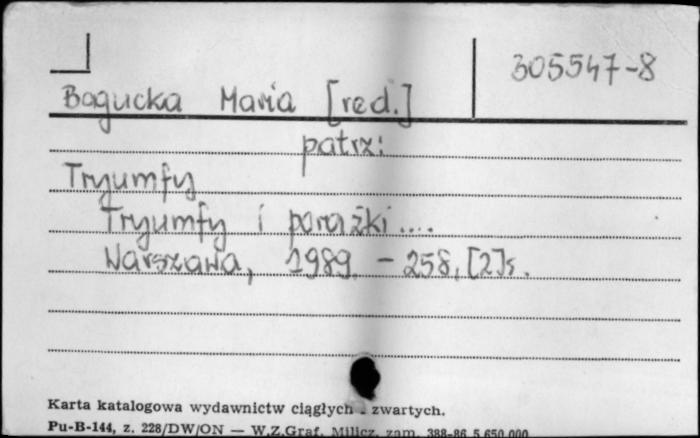 305547-8
Bogucka Maria [red.]
patrz:
Tryumfy
Tryumfy i porażki....
Warszawa, 1989. - 258, [2]s.
Karta katalogowa wydawnictw ciągłych i zwartych.
Pu-B-144, z. 228/DW/ON — W.Z.Graf. Milicz, zam. 388-86 5.650.000